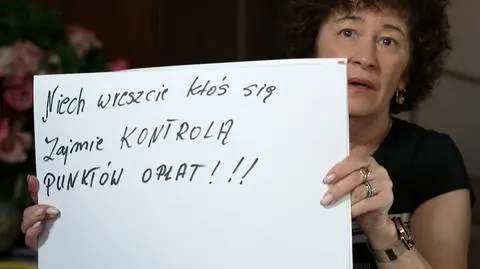 Niech wreszcie ktoś się
zajmie KONTROLĄ
PUNKTÓW OPŁAT!!!